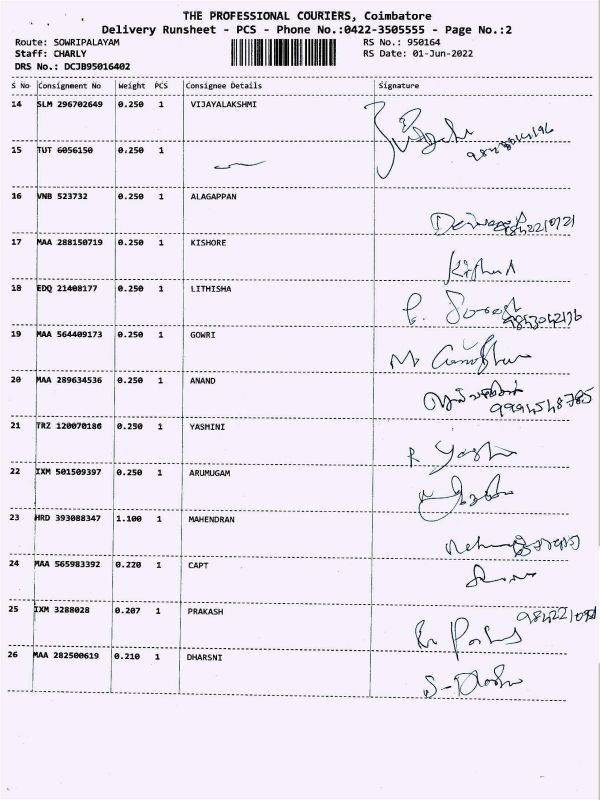 THE PROFESSIONAL COURIERS, Coimbatore
Delivery Runsheet - PCS - Phone No.:0422-3505555 - Page No.:2
Route: SOWRIPALAYAM RS No.: 950164
Staff: CHARLY RS Date: 01-Jun-2022
DRS No.: DCJB95016402
S No Consignment No Weight PCS Consignee Details Signature
14 SLM 296702649 0.250 1 VIJAYALAKSHMI
15 TUT 6056150 0.250 1
16 VNB 523732 0.250 1 ALAGAPPAN
17 MAA 288150719 0.250 1 KISHORE
18 EDQ 21408177 0.250 1 LITHISHA
9843042176
19 MAA 564409173 0.250 1 GOWRI
20 MAA 289634536 0.250 1 ANAND
9994548785
21 TRZ 120070186 0.250 1 YASMINI
22 IXM 501509397 0.250 1 ARUMUGAM
23 HRD 393088347 1.100 1 MAHENDRAN
24 MAA 565983392 0.220 1 CAPT
25 IXM 3288028 0.207 1 PRAKASH
26 MAA 282500619 0.210 1 DHARSNI